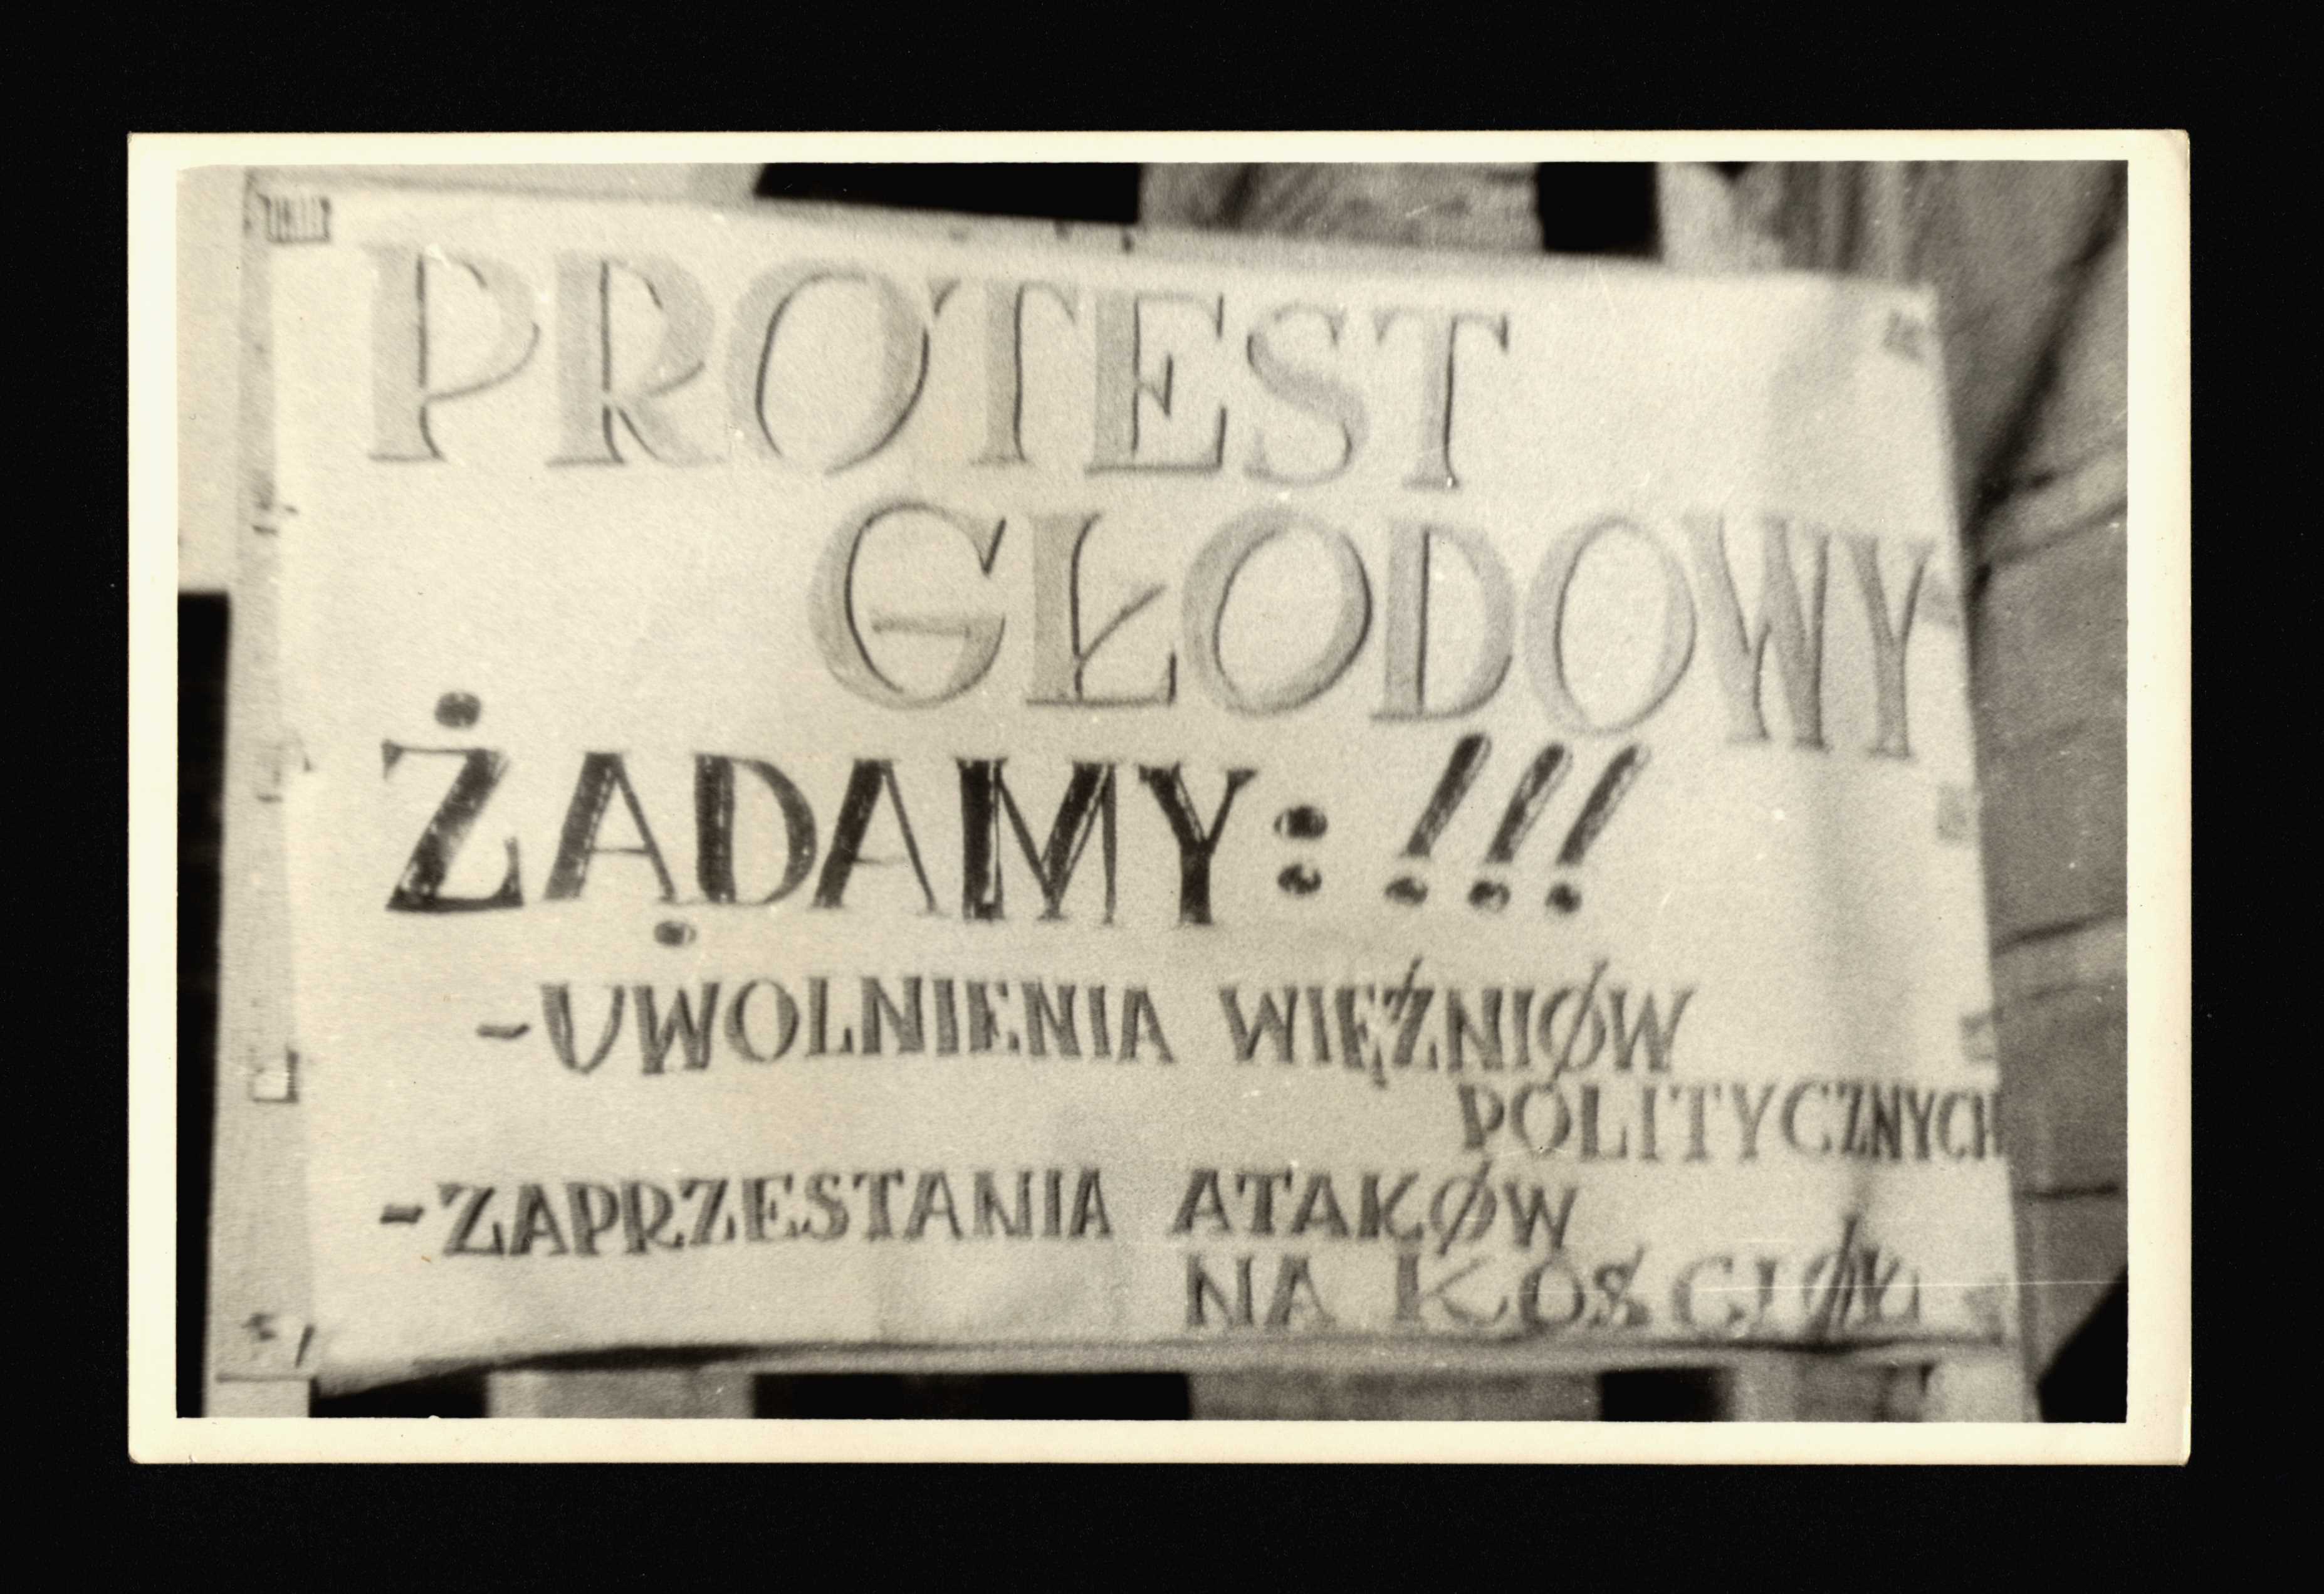 PROTEST
GŁODOWY
ŻĄDAMY: !!!
- UWOLNIENIA WIĘŹNIÓW
POLITYCZNYCH
- ZAPRZESTANIA ATAKÓW
NA KOŚCIÓŁ